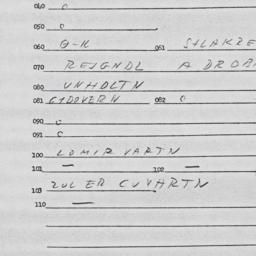 040 0
050 0
060 θ-K 061 SHLAKRE
070 REIGNDL A DROB
080 VNHDLTN
081 GIDOVERN 082 0
090 0
091 0
100 LOMIR VARTN
101 — 102 —
103 ZUL ER CUVARTN
110 —